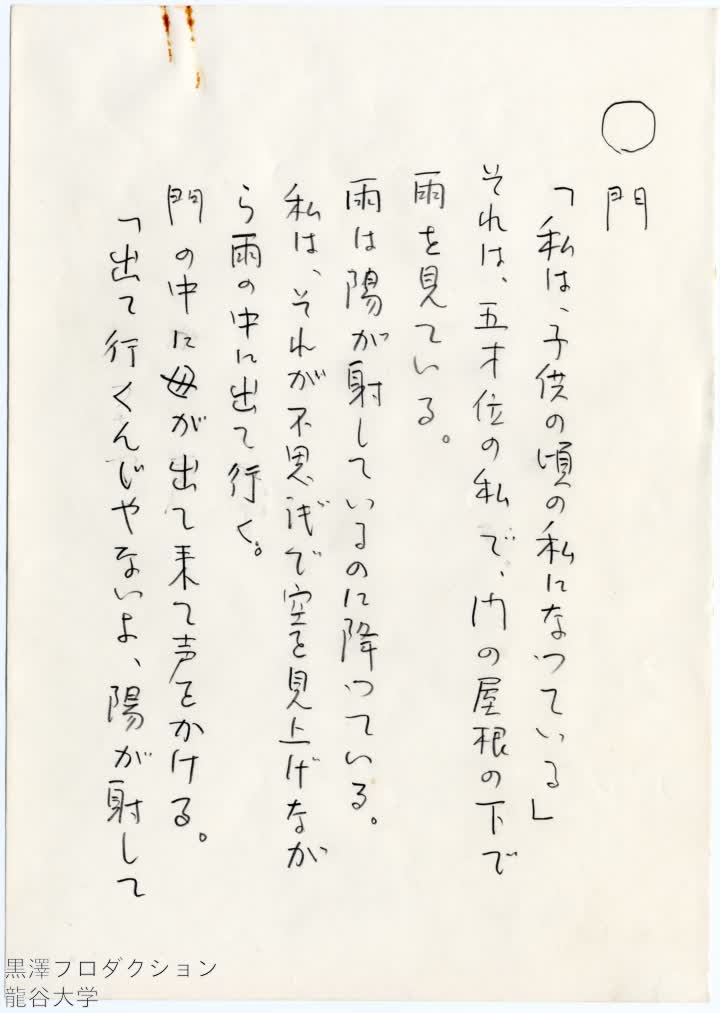 ○ 門
「私は、子供の頃の私になつている」
それは、五才位の私で、門の屋根の下で
雨を見ている。
雨は陽が射しているのに降つている。
私は、それが不思議で空を見上げなが
ら雨の中に出て行く。
門の中に母が出て来て声をかける。
「出て行くんじやないよ、陽が射して
黒澤プロダクション
龍谷大学